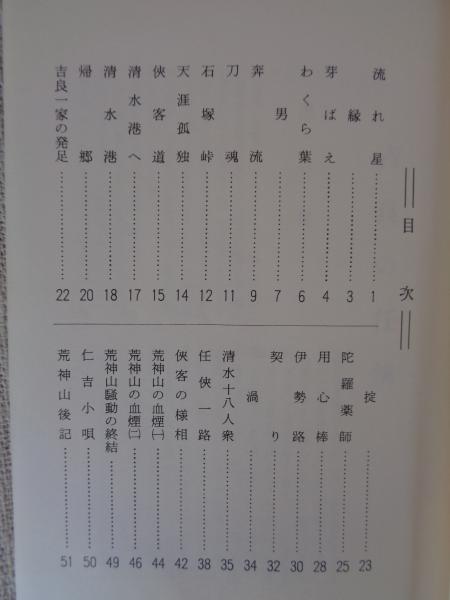 目次
流れ星 1
縁 3
芽ばえ 4
わくら葉 6
男 7
奔流 9
刀魂 11
石塚峠 12
天涯孤独 14
侠客道 15
清水港へ 17
清水港 18
帰郷 20
吉良一家の発足 22
掟 23
陀羅薬師 25
用心棒 28
伊勢路 30
契り 32
渦 34
清水十八人衆 35
任侠一路 38
侠客の様相 42
荒神山の血煙㈠ 44
荒神山の血煙㈡ 46
荒神山騒動の終結 49
仁吉小唄 50
荒神山後記 51